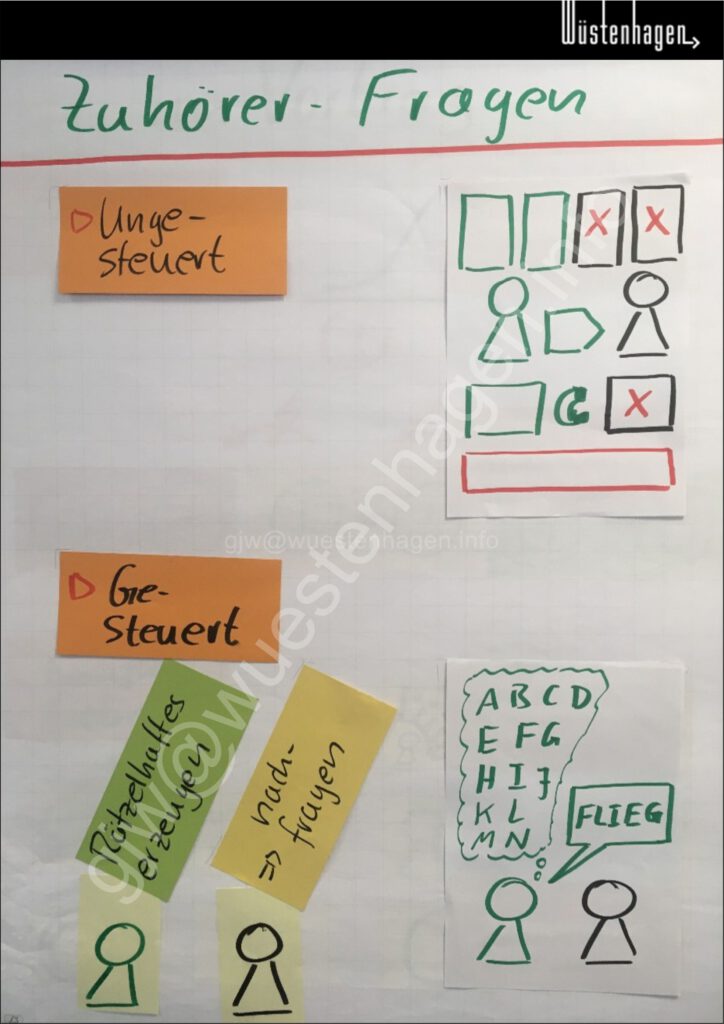 Wüstenhagen
Zuhörer - Fragen
Unge-
steuert
X X
X
gjw@wuestenhagen.info
gjw@wuestenhagen.info
Ge-
steuert
Rätzelhaftes
erzeugen
nach-
=> fragen
A B C D
E F G
H I J
K L
M N
FLIEG